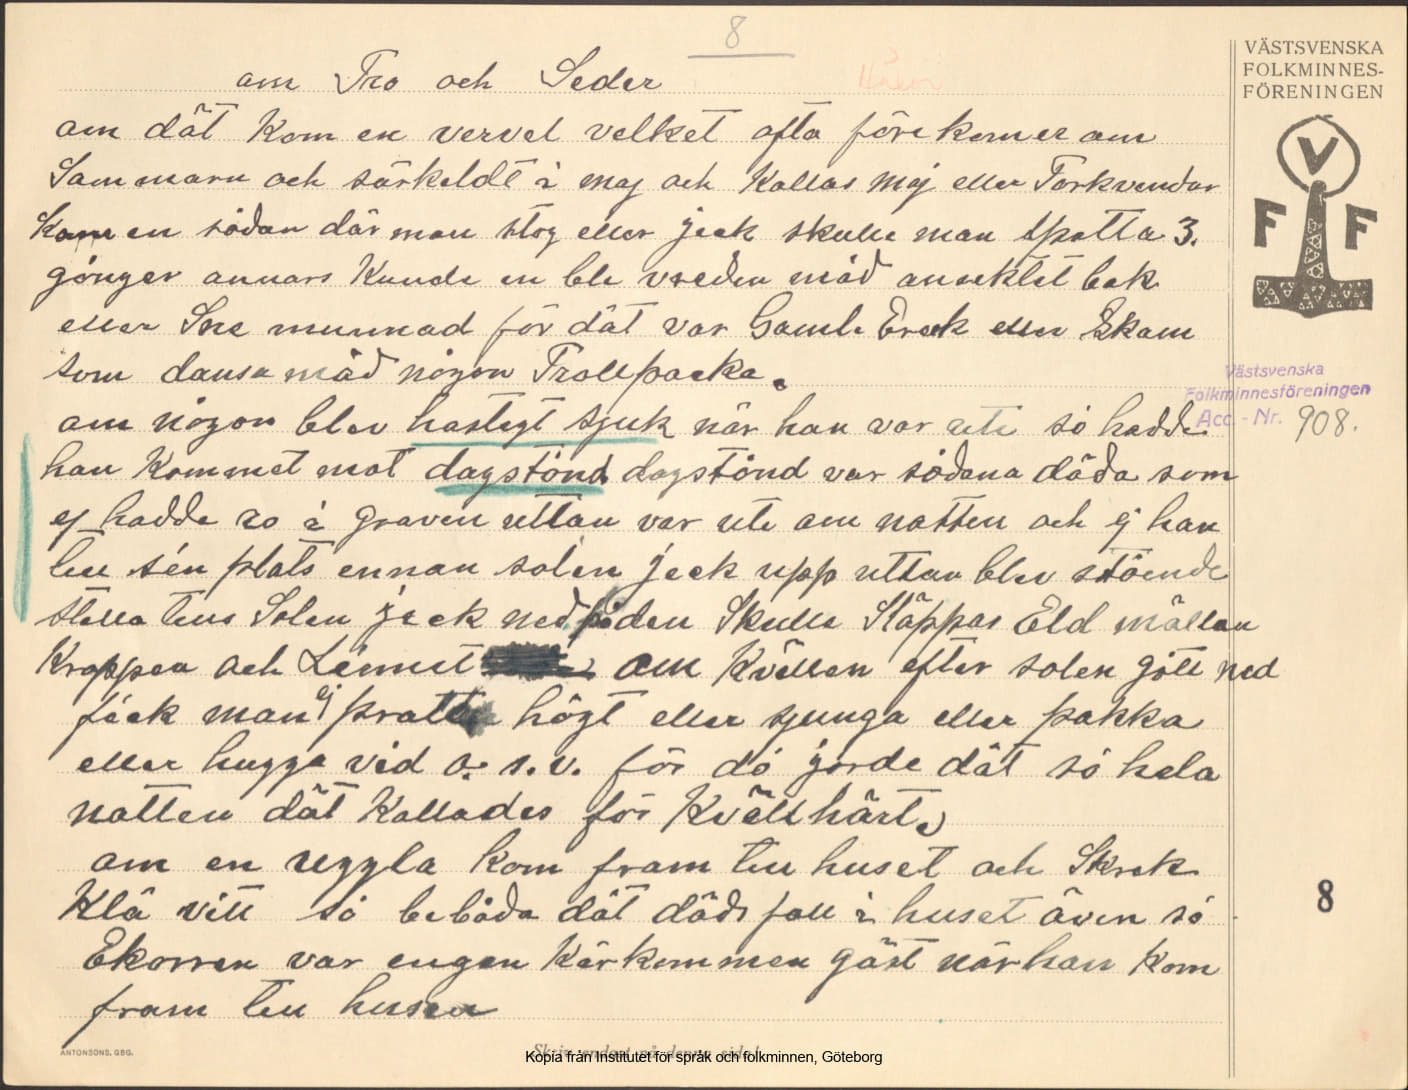 8
om Tro och Seder
VÄSTSVENSKA
FOLKMINNES-
FÖRENINGEN
V
F F
om dät kom en vervel velket ofta före komer om
Sommarn och särkeldt i maj och kallas Maj eller Torkvendar
kom en södan där man stog eller jeck skulle man spotta 3.
gönger annars kunde en ble vreden mäd ansektet bak
eller Sne munnad för dät var Gamle Erek eller Skam
som dansa mäd nögon Trollpacka.
om nögon blev hastegt sjuk när han var ute sö hadde
han kommet mot dagstönd dagstönd var södana döda som
ej hadde ro i graven uttan var ute om natten och ej han
till sen plats ennan solen jeck upp uttan blev stöende
stella tills Solen jeck ned på den Skulle Släppas Eld mällan
Kroppen och Linnet om Kvällen efter solen gött ned
feck man ej pratta högt eller sjunga eller pakka
eller hugga ved o. s. v. för dö jorde dät sö hela
natten dät kallades för Kvällhärt.
om en uggla kom fram till huset och Skrek
Klä vitt sö beböda dät dödsfall i huset även sö
Ekorren var engen Kärkommen gäst när han kom
fram till husen
Västsvenska
Folkminnesföreningen
Acc. - Nr. 908.
8
ANTONSONS, GBG.
Skriv endast på denna sida!
Kopia från Institutet för språk och folkminnen, Göteborg